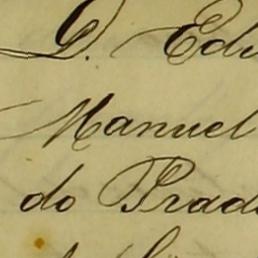 D. Edu
Manuel
do Prad